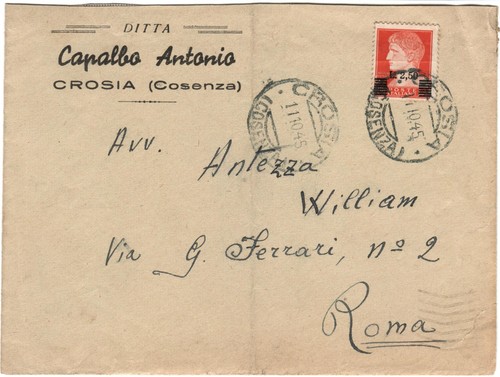 DITTA
Capalbo Antonio
CROSIA (Cosenza)
L. 2,50
POSTE ITALIANE
CROSIA (COSENZA)
11.10.45
CROSIA (COSENZA)
11.10.45
Avv.
Antezza
William
Via G. Ferrari, nº 2
Roma